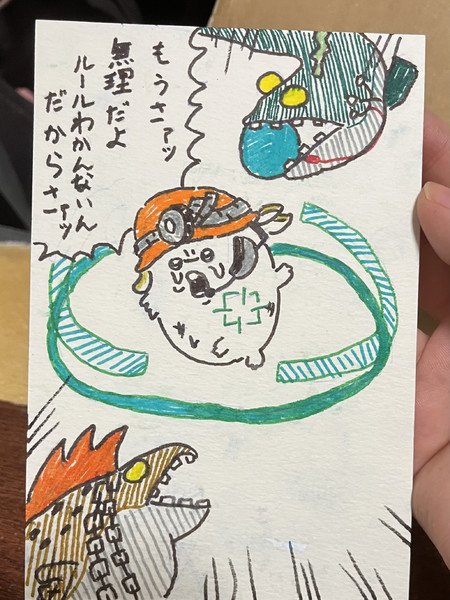 もうさァッ
無理だよ
ルールわかんないん
だからさァッ